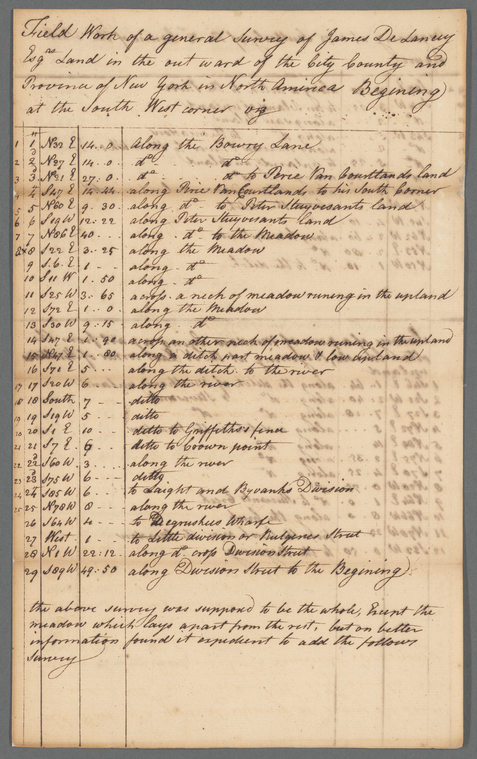 Field Work of a general Survey of James De Lancey
Esqrs Land in the out ward of the City County and
Province of New York in North America Begining
at the South West corner viz
1 1 N32 E 14..0 Along the Bowry Lane
2 2d N27 E 14..0 do do
3 3d N21 E 27..0 do do to Perce Van Courtlands land
4 4th S47 E 14..44 along Perce Van Courtlands to his South Corner
5 5 N60 E 9..30 along do to Peter Stuyvesants land
6 6 S19 W 12..22 along Peter Stuyvesants land
7 7 N86 E 40 along do to the Meadow
8 8 S22 E 3..25 along the Meadow
9 S..6..E 1 along do
10 S11 W 1..50 along do
11 S25 W 3..65 across a neck of meadow runing in the upland
12 S72 E 1..0 along the Meadow
13 S30 W 9..15 along do
14 S47 E 1..90 across an other neck of meadow runing in the upland
15 E 1..80 along a ditch part meadow & low upland
16 S71 E 5 along the ditch to the river
17 17 S20 W 6 along the river
18 18 South 7 ditto
19 19 S19 W 5 ditto
20 20 S1 E 10 ditto to Griffiths's fence
21 21 S7 E 6 ditto to Crown point
22 22d S60 W 3 along the river
23 23d S75 W 6 ditto
24 24th S85 W 6 to Laight and Byvanks Division
25 25 N78 W 8 along the river
26 S64 W 4 to Degrushes Wharfe
27 West 1 to Little division or Rutgers Street
28 N1 W 22..12 along do cross Division Street
29 S89 W 49..50 along Division Street to the Begining
the above survey was supposd to be the whole, Except the
meadow which lays apart from the rest, but on better
information found it expedient to add the follows
Survey